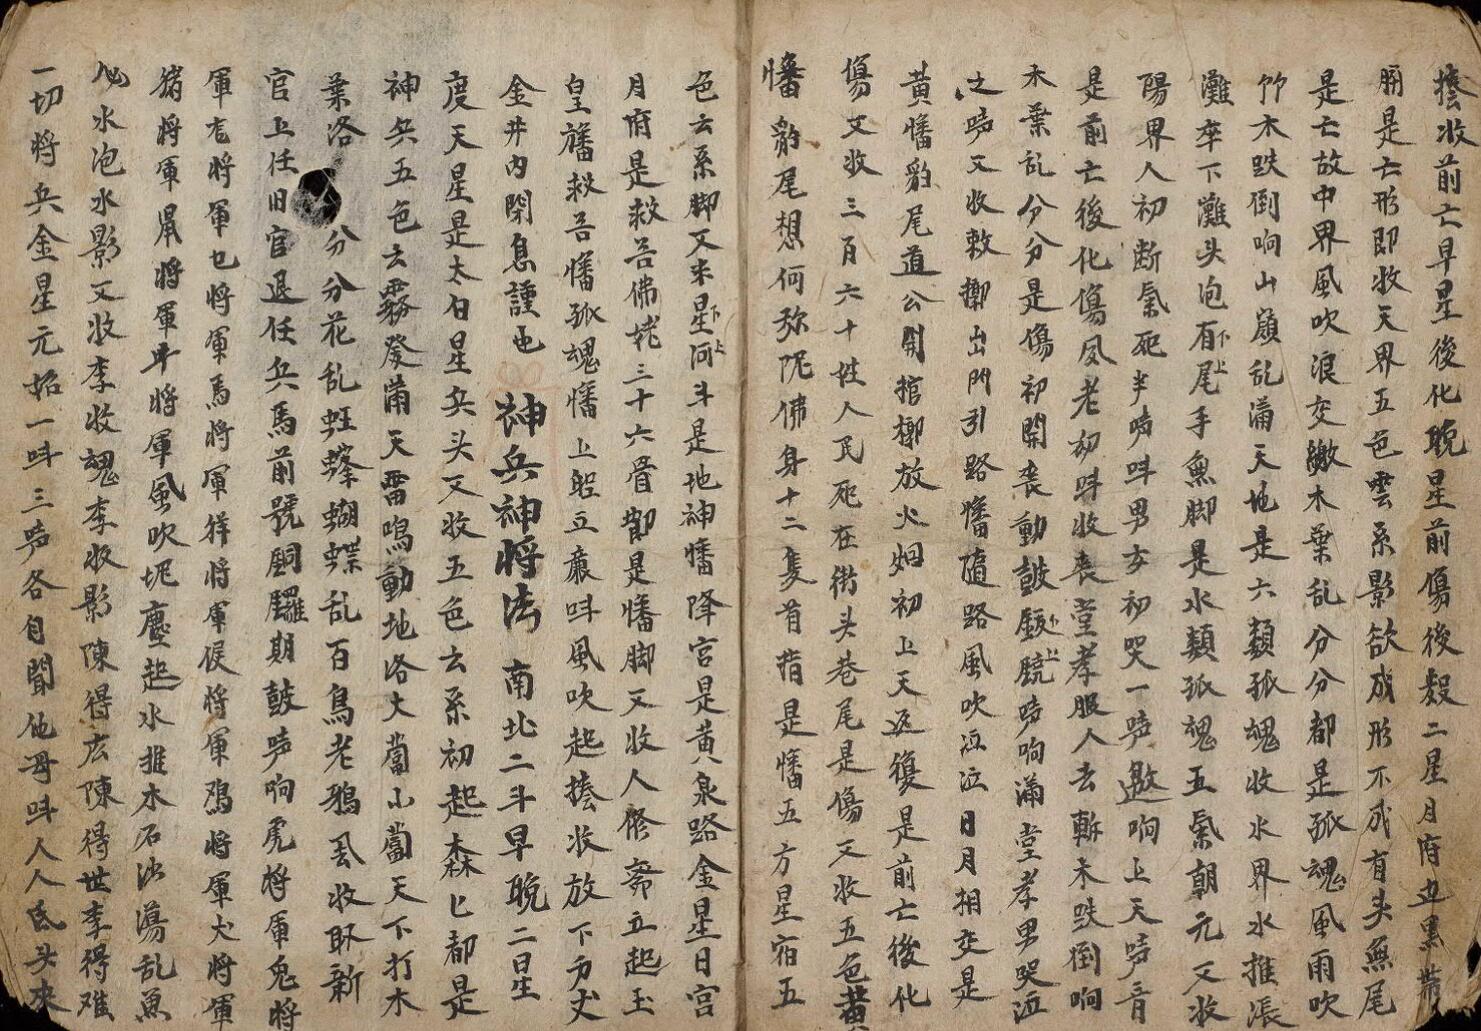 收前亡早星後化晚星前傷後殺二星月府五黑
是亡形即收天界五色雲系影欲成形不成有头無尾
是亡故中界風吹浪交繳木葉乱分分都是孤魂風雨吹
竹木跌倒响山嶺乱滿天地是六類孤魂收水界水推漲
灘卒下灘头泡有下尾上手魚脚是水類孤魂五氣朝元又收
陽界人初断氣死半喚呌男女初哭一声邀响上天声音
是前亡後化傷風老初呌收丧堂孝服人去斬木跌倒响
木葉乱分分是傷初開丧動皷声响滿堂孝男哭泣
之声又收敕擲出門引路幡隨路風吹泣泣日月相交是
黄幡豹尾道公開棺放火烟初上天返復是前亡後化
傷又收三百六十姓人民死在街头巷尾是傷又收五色黄
幡豹尾想何弥陀佛身十二隻首指是幡五方星宿五
色云系脚又来星下河上斗是地神幡降宮是黄泉路金星日宮
月府是救吾佛三十六骨都是幡脚又收人修齋立起玉
皇旛救吾幡孤魂幡上呌風吹起收放下为丈
金井内閉息謹也 神兵神将法 南北二斗早晚二星
度天星是太白星兵头又收五色云系初起森匕都是
神兵五色云霧發滿天雷鳴動地洛大當小當天下打木
葉洛分分花乱蚯蟻蝴蝶乱百鳥老鴉丟收新
官上任旧官退任兵馬前號銅鑼期鼓声响虎将軍兔将
軍龙将軍也将軍馬将軍祥将軍侯将軍鴉将軍犬将軍
猪将軍鼠将軍牛将軍風吹坭塵起水推木石沙蕩乱魚
水泡水影又收李收魂李收影陳得広陳得世李得
一切将兵金星元招一呌三声各自聞他母呌人人低头来